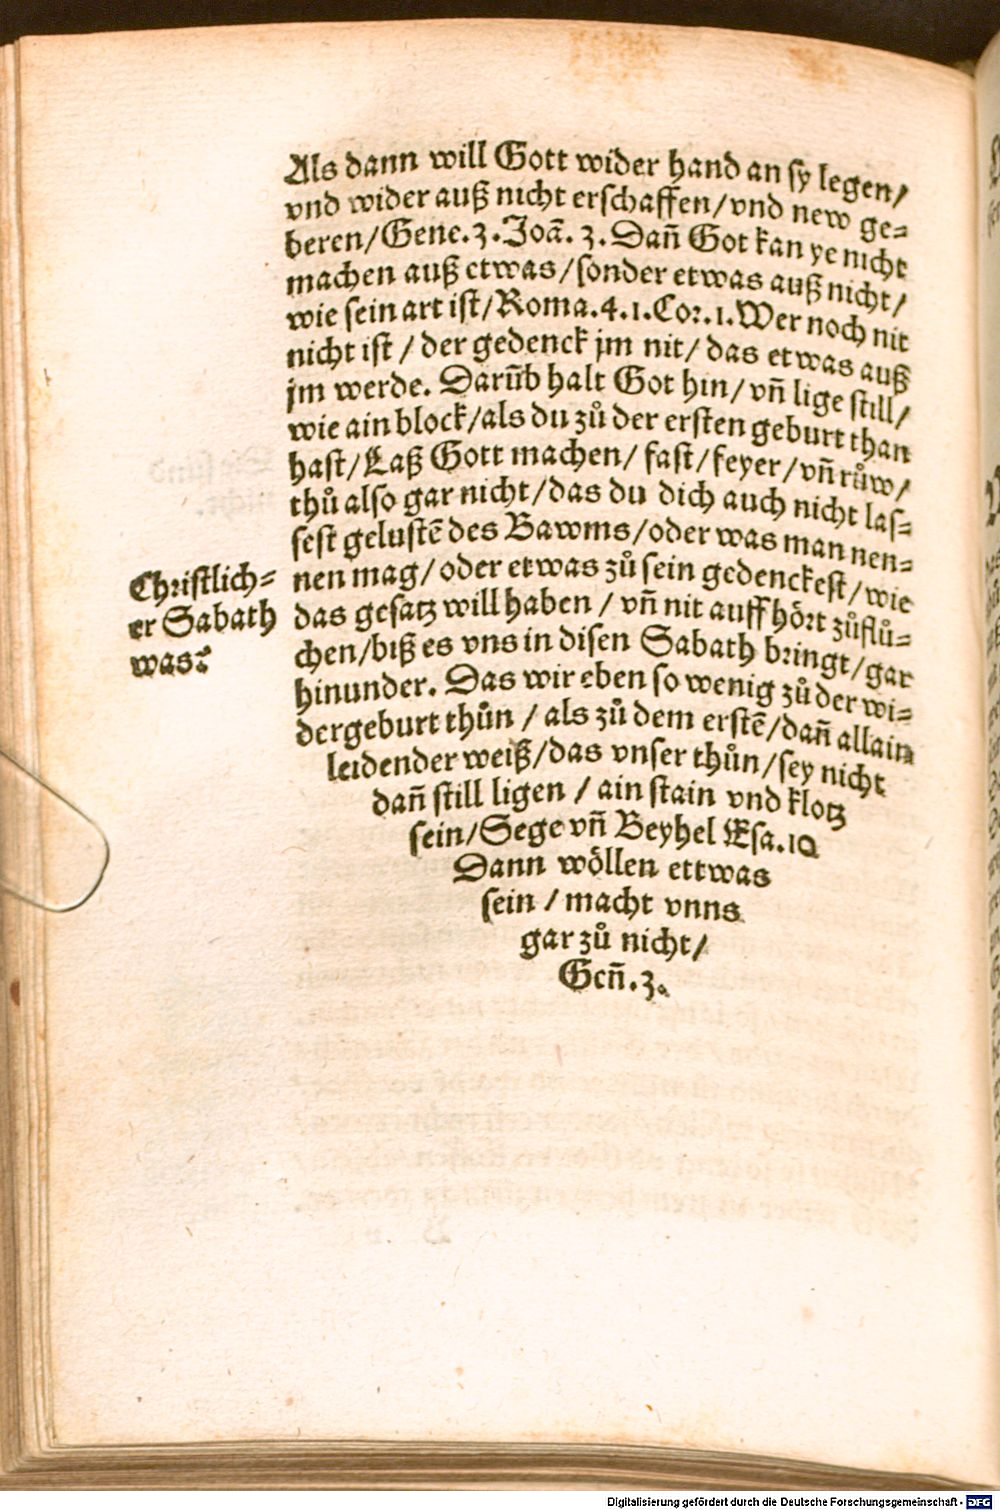 Als dann will Gott wider hand an sy legen/
vnd wider auß nicht erschaffen/vnd new ge-
beren/Gene.3.Joã.3.Dañ Got kan ye nicht
machen auß etwas/sonder etwas auß nicht/
wie sein art ist/Roma.4.1.Cor.1.Wer noch nit
nicht ist/der gedenck jm nit/das etwas auß
jm werde. Darũb halt Got hin/vñ lige still/
wie ain block/als du zů der ersten geburt than
hast/Laß Gott machen/fast/feyer/vñ růw/
thů also gar nicht/das du dich auch nicht las-
sest gelustẽ des Bawms/oder was man nen-
nen mag/oder etwas zů sein gedenckest/wie
das gesatz will haben/vñ nit auff hört zůflů-
chen/biß es vns in disen Sabath bringt/gar
hinunder. Das wir eben so wenig zů der wi-
dergeburt thůn/als zů dem erstẽ/dañ allain
leidender weiß/das vnser thůn/sey nicht
dañ still ligen/ain stain vnd klotz
sein/Sege vñ Beyhel Esa.10
Dann wöllen ettwas
sein/macht vnns
gar zů nicht/
Geñ.3.
Christlich-
er Sabath
was?
Digitalisierung gefördert durch die Deutsche Forschungsgemeinschaft - DFG